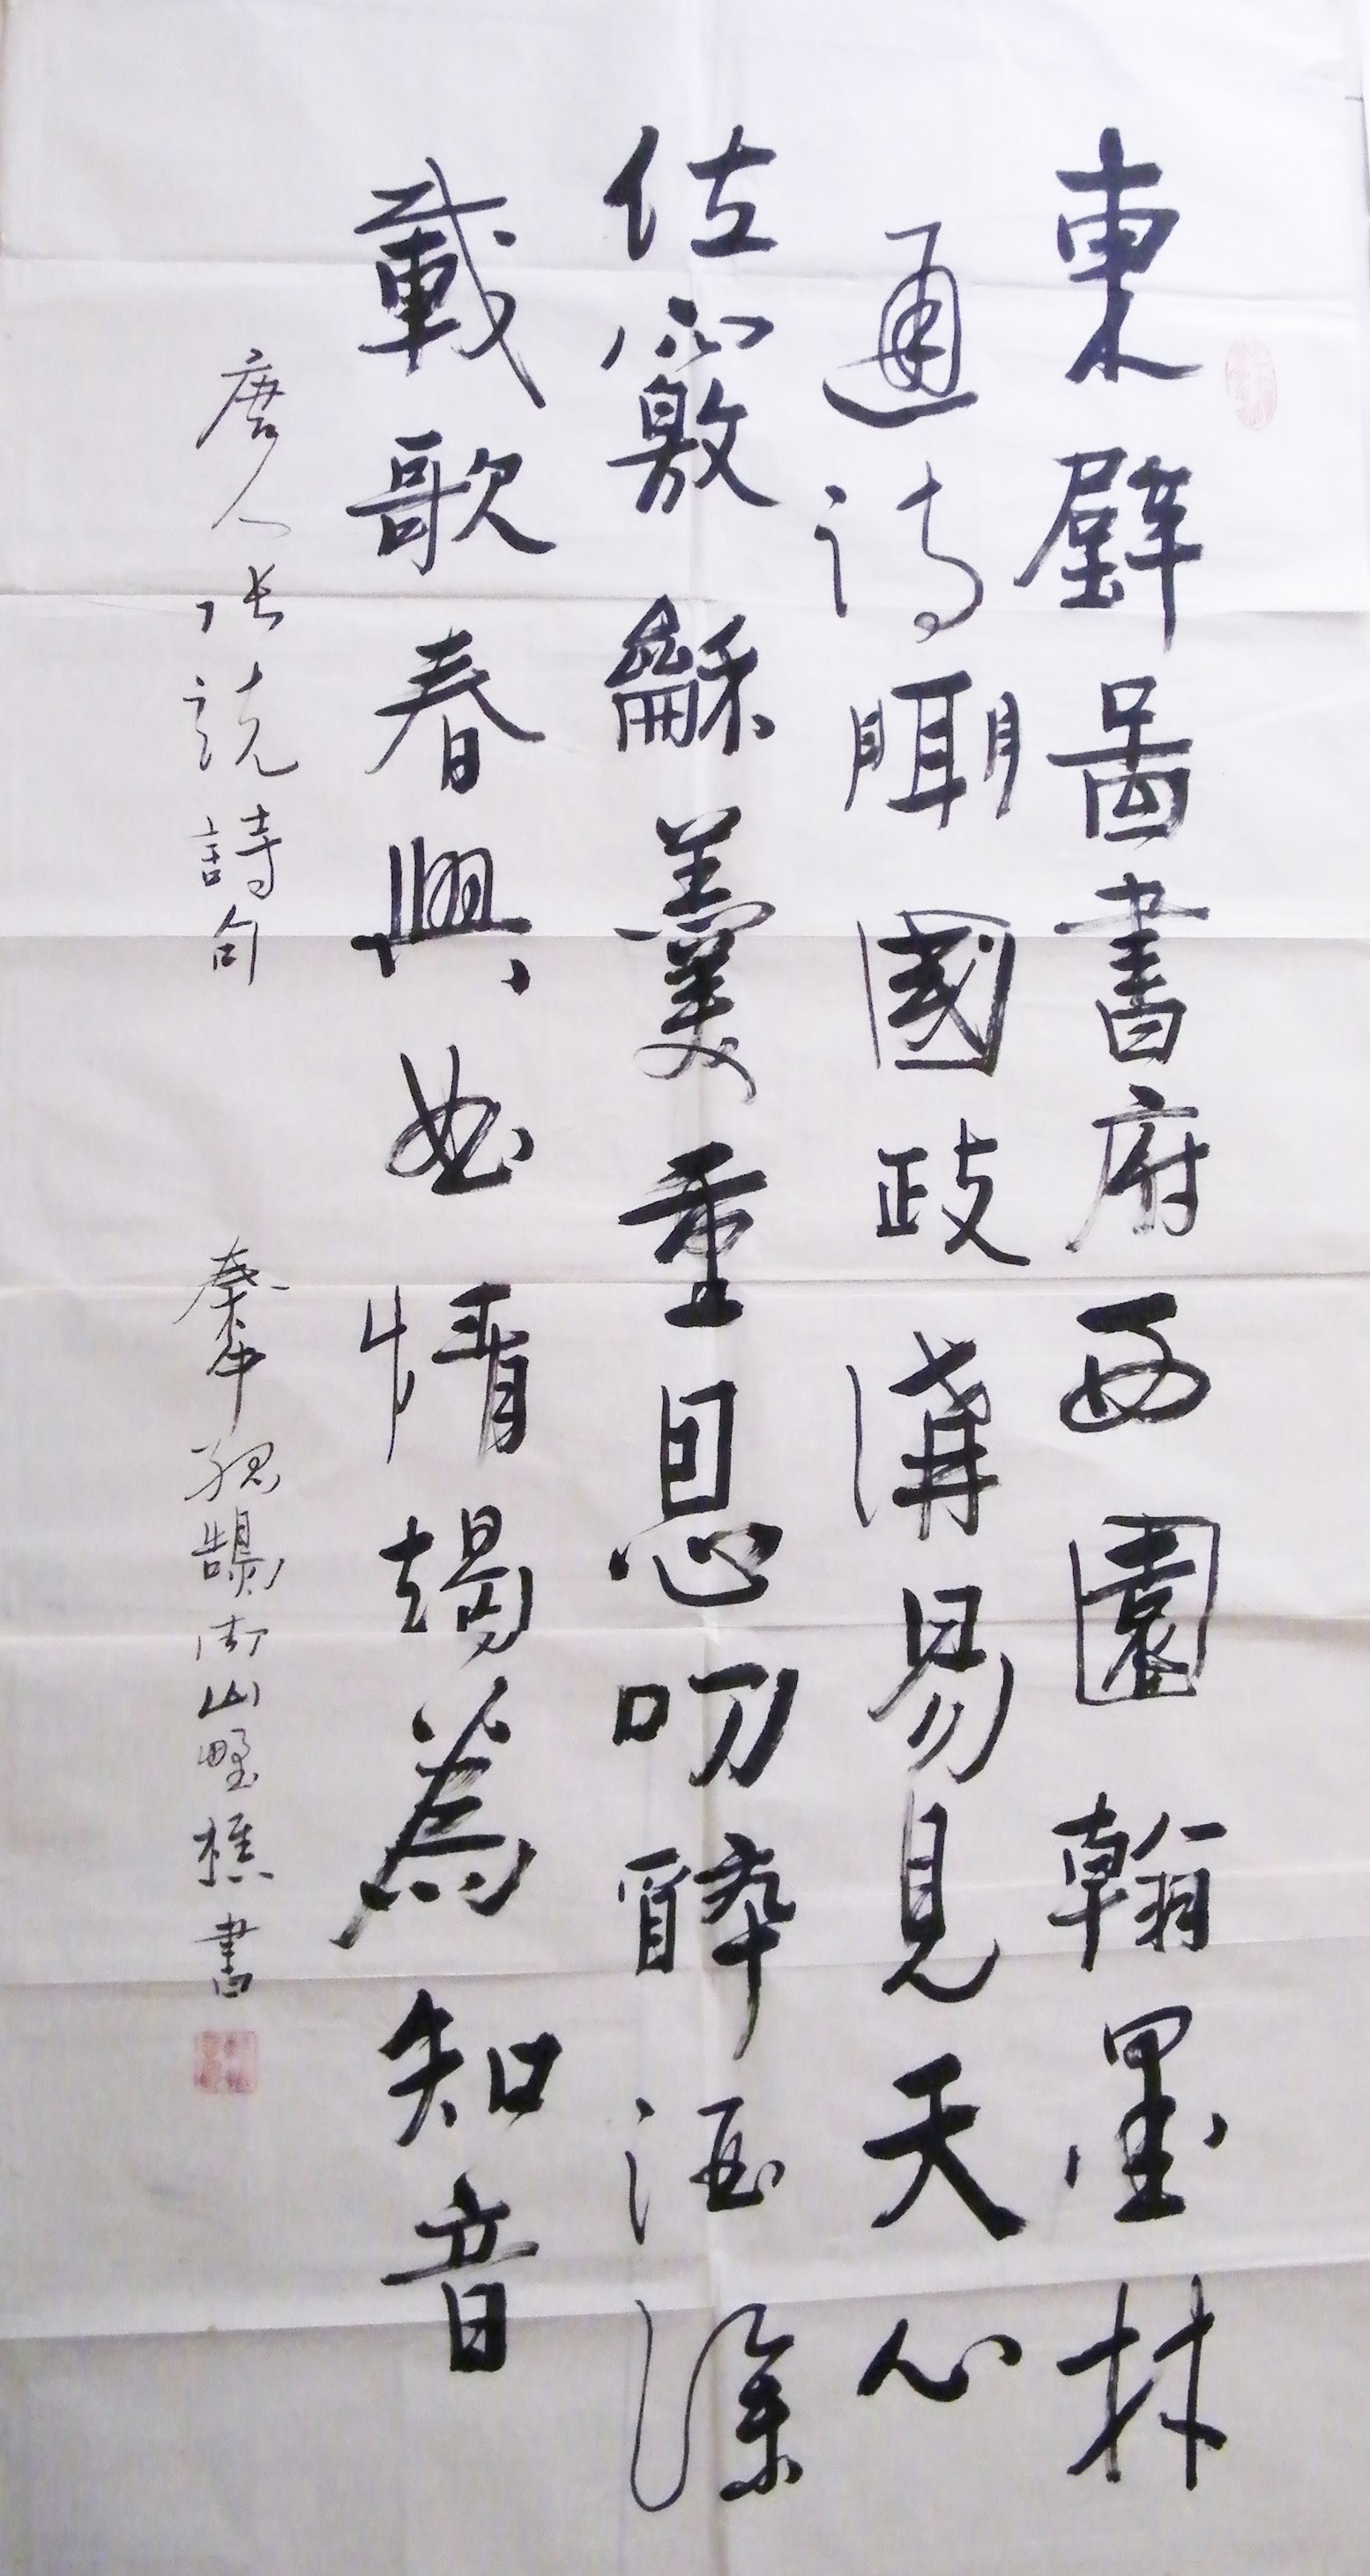 東壁啚書府西園翰墨林
通詩聞國政講易見天心
位竊龢羹重恩叨醉酒深
載歌春興曲情竭為知音
唐人张説詩句 秦中孤鵠南山野樵書